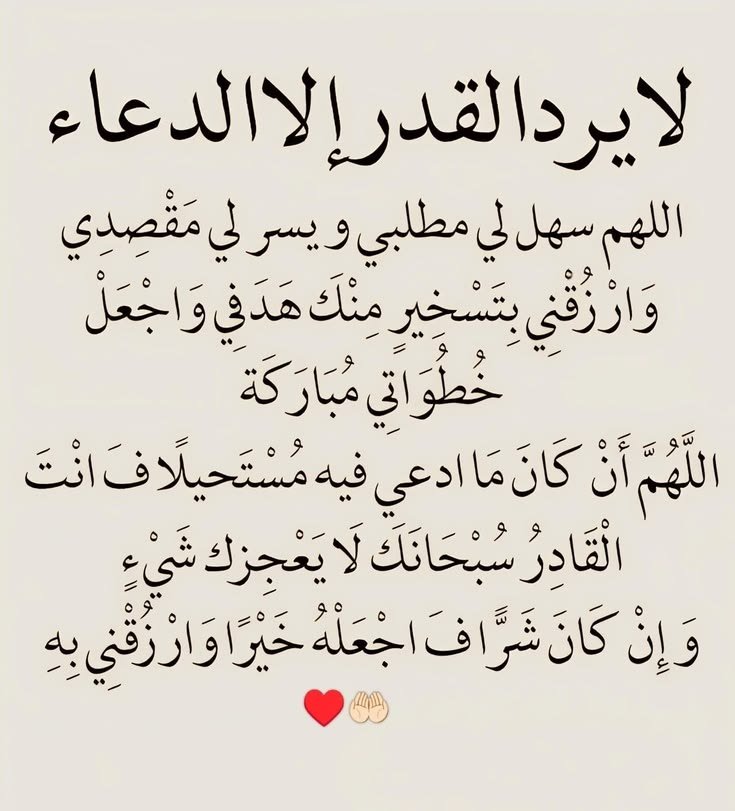 لا يرد القدر إلا الدعاء
اللهم سهل لي مطلبي و يسر لي مَقْصِدِي
وَارْزُقْنِي بِتَسْخِيرٍ مِنْكَ هَدَفِي وَاجْعَلْ
خُطُوَاتِي مُبَارَكَة
اللَّهُمَّ أَنْ كَانَ مَا ادعي فيه مُسْتَحيلًا فَ انْتَ
الْقَادِرُ سُبْحَانَكَ لَا يَعْجِزك شَيْءٍ
وَ إِنْ كَانَ شَرًّا فَ اجْعَلْهُ خَيْرًا وَارْزُقْنِي بِهِ
🤲🏻♥️